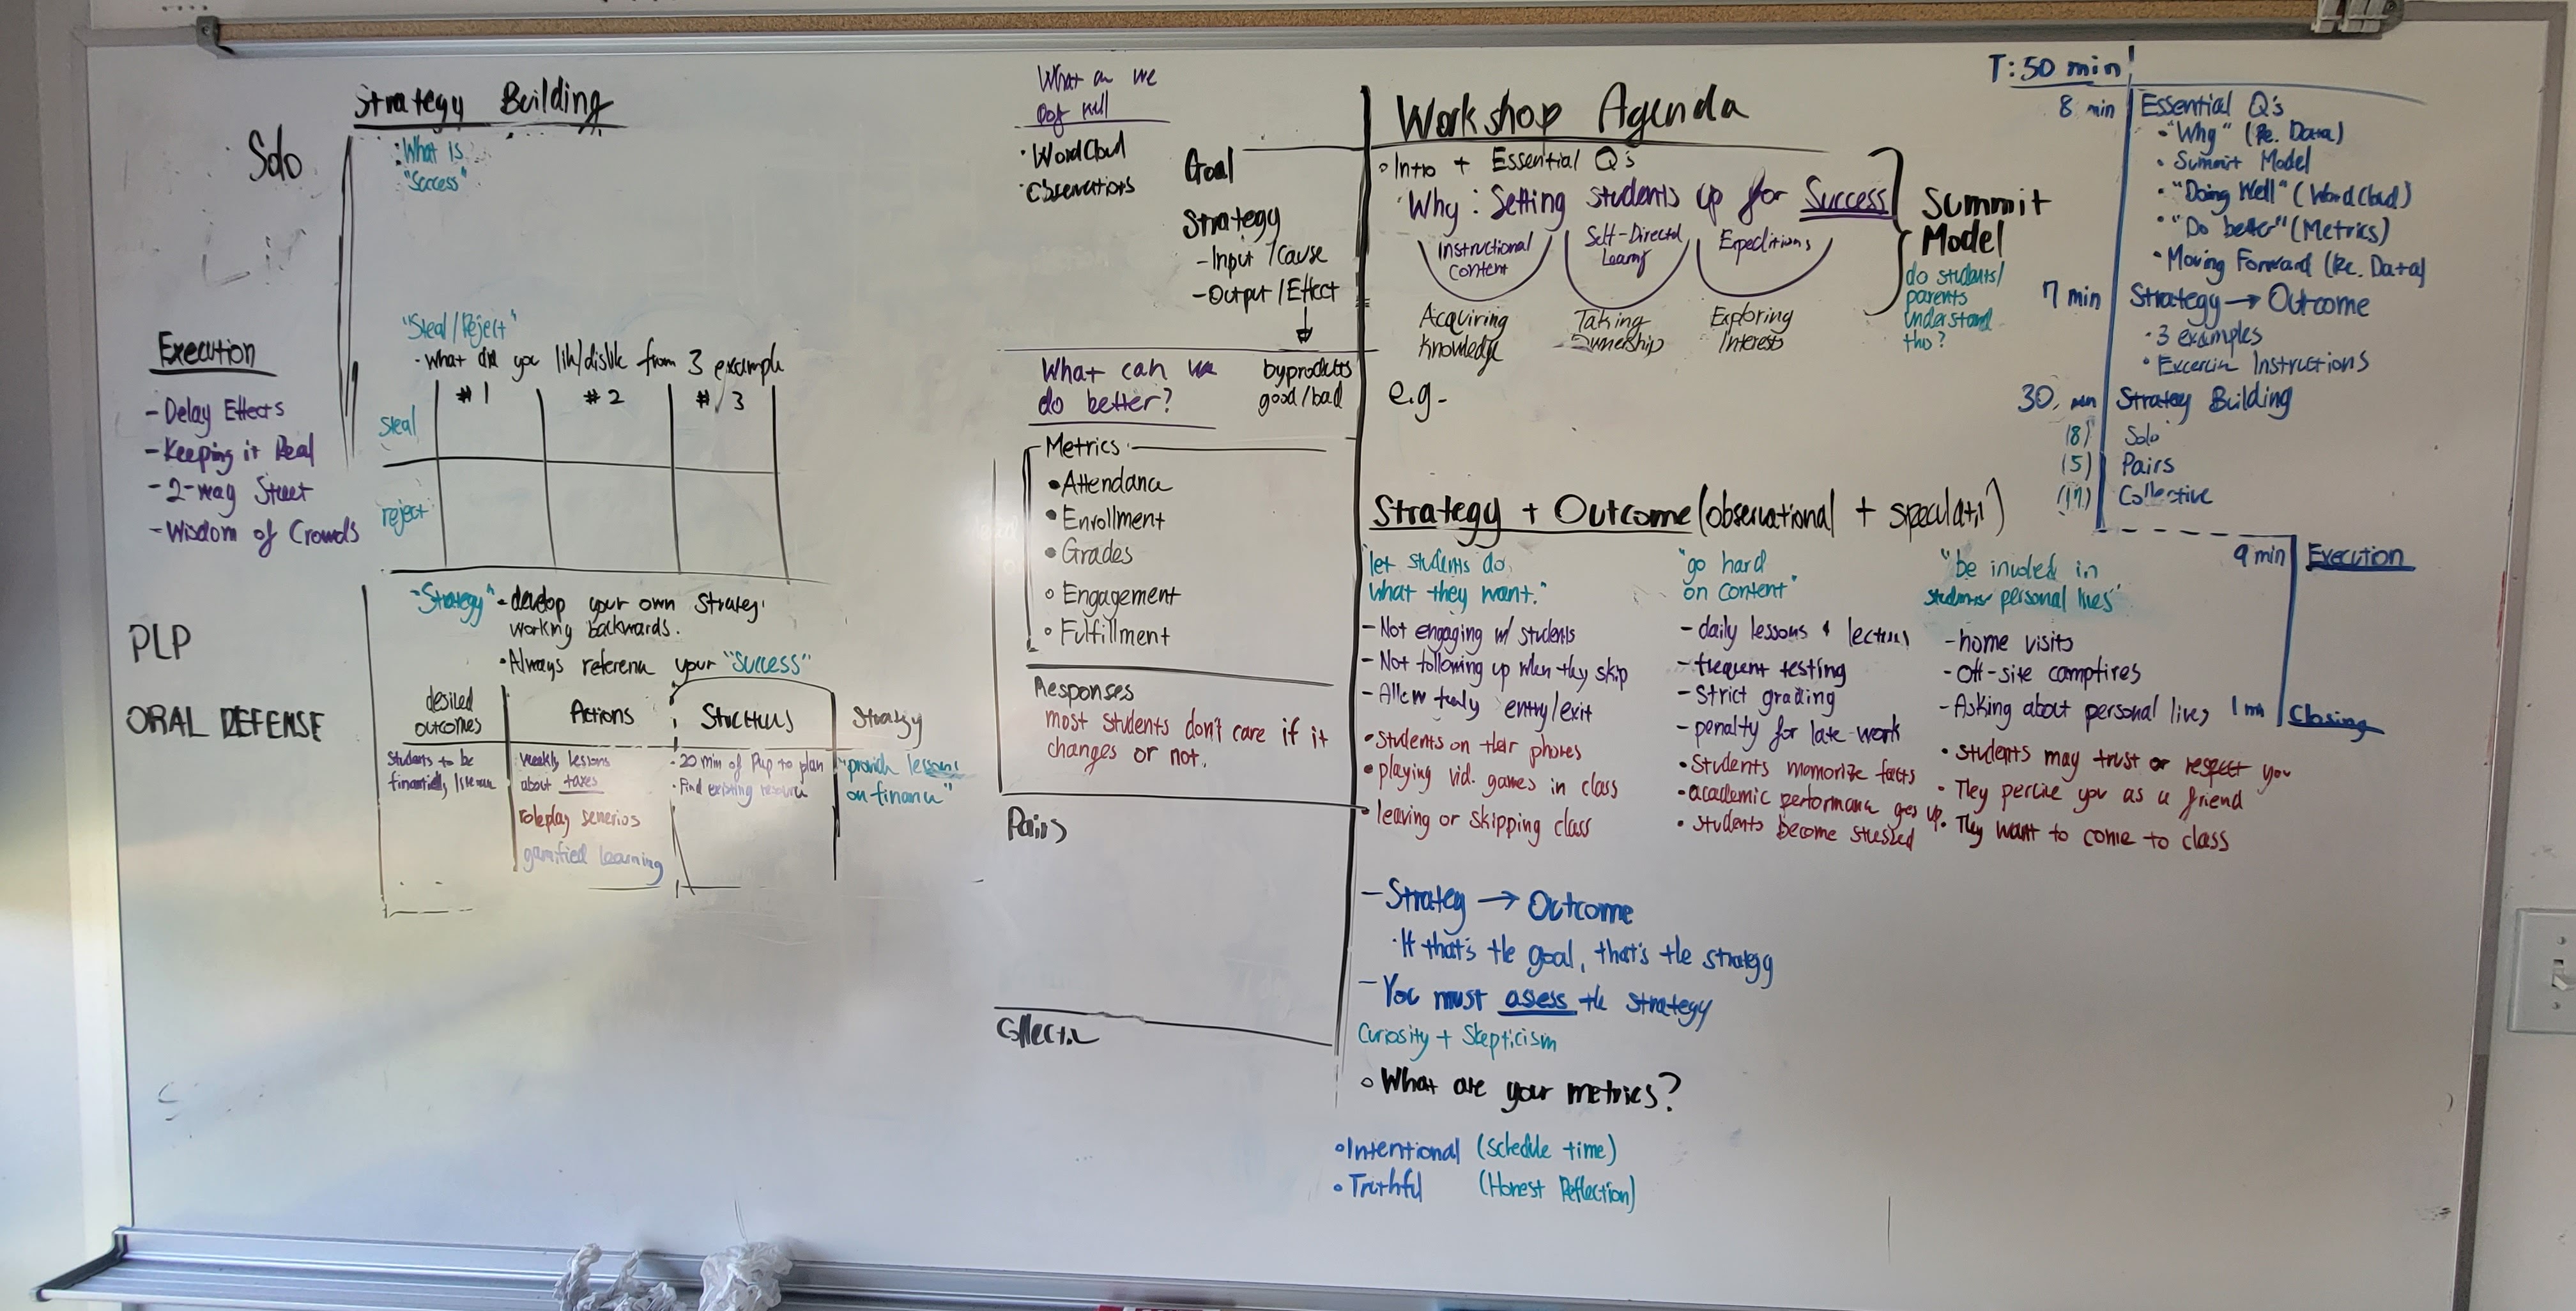 Strategy Building
Solo
• What is
"Success"
"Steal/Reject"
• What do you lik/dislik from 3 example
#1 #2 # 3
Steal
reject
Execution
- Delay Effects
- Keeping it Real
- 2-way Street
- Wisdom of Crowds
PLP
ORAL DEFENSE
"Strategy" - develop your own Strateg
working backwards.
• Always referenc your "Success"
desired
outcomes
Actions
Structures
Strategy
Students to be
financially literate
weekly lessons
about taxes
roleplay senerios
gamified learning
- 20 min of Pup to plan
• Find existing resource
"provide lessons
on finance"
What are we
well
• WordCloud
• Observations
Goal
Strategy
- Input / Cause
- Output / Effect
byproducts
good/bad
What can we
do better?
Metrics
• Attendance
• Enrollment
• Grades
◦ Engagement
◦ Fulfillment
Responses
most students don't care if it
changes or not.
Pairs
Collectiv
Workshop Agenda
◦ Intro + Essential Q's
Why: Setting students up for Success
Instructional
Content
Self-Directed
Learng
Expeditions
Acquiring
Knowledge
Taking
Ownership
Exploring
Interests
Summit
Model
do students/
parents
understand
this?
e.g.
Strategy + Outcome (observational + speculativ)
"let students do
what they want."
- Not engaging w/ students
- Not following up when they skip
- Allow entry/exit
• Students on their phones
• playing vid. games in class
• leaving or skipping class
"go hard
on content"
- daily lessons & lectures
- frequent testing
- Strict grading
- penalty for late work
• Students memorize facts
• academic performance goes up.
• Students become stressed
"be involved in
students' personal lives"
- home visits
- Off-site campfires
- Asking about personal lives
• Students may trust or respect you
• They percive you as a friend
• They want to come to class
- Strategy → Outcome
• If that's the goal, that's the strategy
- You must asess the strategy
Curiosity + Skepticism
◦ What are your metrics?
◦ Intentional (Schedule time)
◦ Truthful (Honest Reflection)
T: 50 min
8 min Essential Q's
• "Why" (Re. Data)
• Summit Model
• "Doing Well" (WordCloud)
• "Do better" (Metrics)
• Moving Forward (Re. Data)
7 min Strategy → Outcome
• 3 examples
• Instructions
30. min Strategy Building
(8) Solo
(5) Pairs
(17) Collective
9 min Execution
1 min Closing